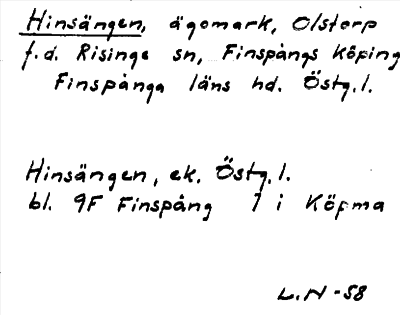 Hinsängen, ägomark, Olstorp
f.d. Risinge sn, Finspångs Köping
Finspånga läns hd. Östg.l.
Hinsängen, ek. Östg.l.
bl. 9F Finspång 1 i Köpma
L.N-58